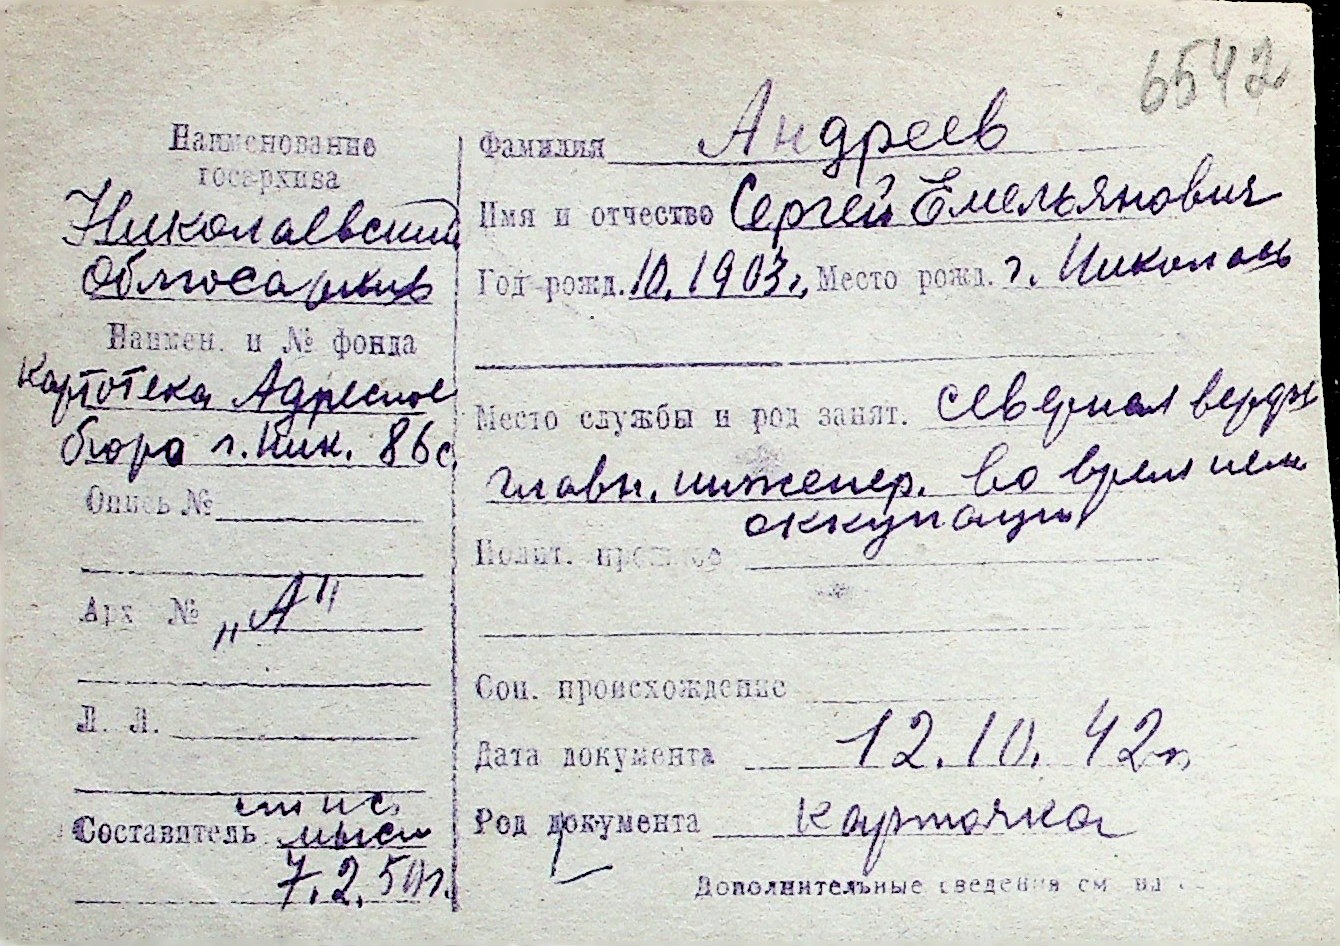 6542
Наименование
госархива
Николаевский
Облгосархив
Наимен. и № фонда
Картотека Адресное
бюро г. Ник. 86с.
Опись №
Арх №
„А"
Л. Л.
Составитель
7.2.50г.
Фамилия Андреев
Имя и отчество Сергей Емельянович
Год рожд. 10.1903г., Место рожд. г. Николаев
Место службы и род занят. северная верфь
главн. инженер. во время нем.
оккупации
Полит. прошлое
Соц. происхождение
Дата документа 12.10.42г.
Род документа карточка
Дополнительные сведения см. на